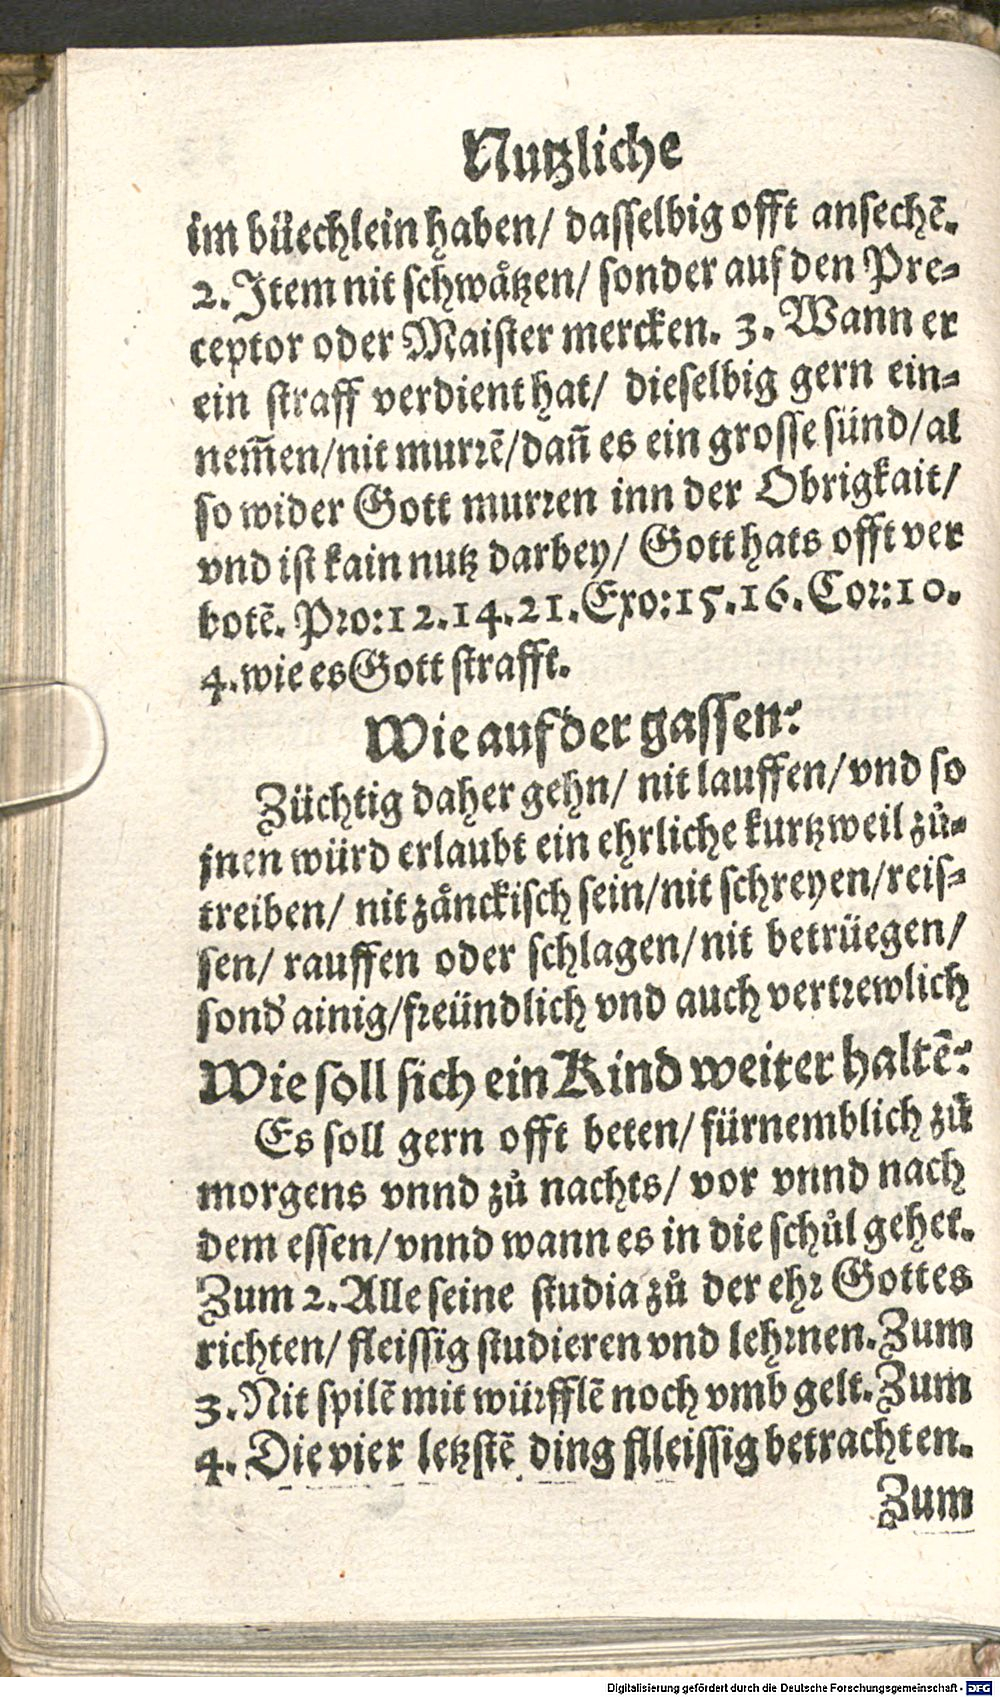 Nutzliche
im büechlein haben/ dasselbig offt ansechē.
2. Item nit schwåtzen/ sonder auf den Pre-
ceptor oder Maister mercken. 3. Wann er
ein straff verdient hat/ dieselbig gern ein-
nem̄en/nit murrē/dañ es ein grosse sünd/al
so wider Gott murren inn der Obrigkait/
vnd ist kain nutz darbey/ Gott hats offt ver
botē. Pro:12.14.21.Exo:15.16.Cor:10.
4. wie es Gott strafft.
Wie auf der gassen:
Züchtig daher gehn/ nit lauffen/vnd so
jnen würd erlaubt ein ehrliche kurtzweil zů-
treiben/ nit zånckisch sein/nit schreyen/reis-
sen/ rauffen oder schlagen/nit betrüegen/
sond' ainig/freündlich vnd auch vertrewlich
Wie soll sich ein Kind weiter haltē:
Es soll gern offt beten/ fürnemblich zů
morgens vnnd zů nachts/ vor vnnd nach
dem essen/vnnd wann es in die schůl gehet.
Zum 2. Alle seine studia zů der ehr Gottes
richten/ fleissig studieren vnd lehrnen. Zum
3. Nit spilē mit würfflē noch vmb gelt. Zum
4. Die vier letzstē ding flleissig betrachten.
Zum
Digitalisierung gefördert durch die Deutsche Forschungsgemeinschaft - DFG